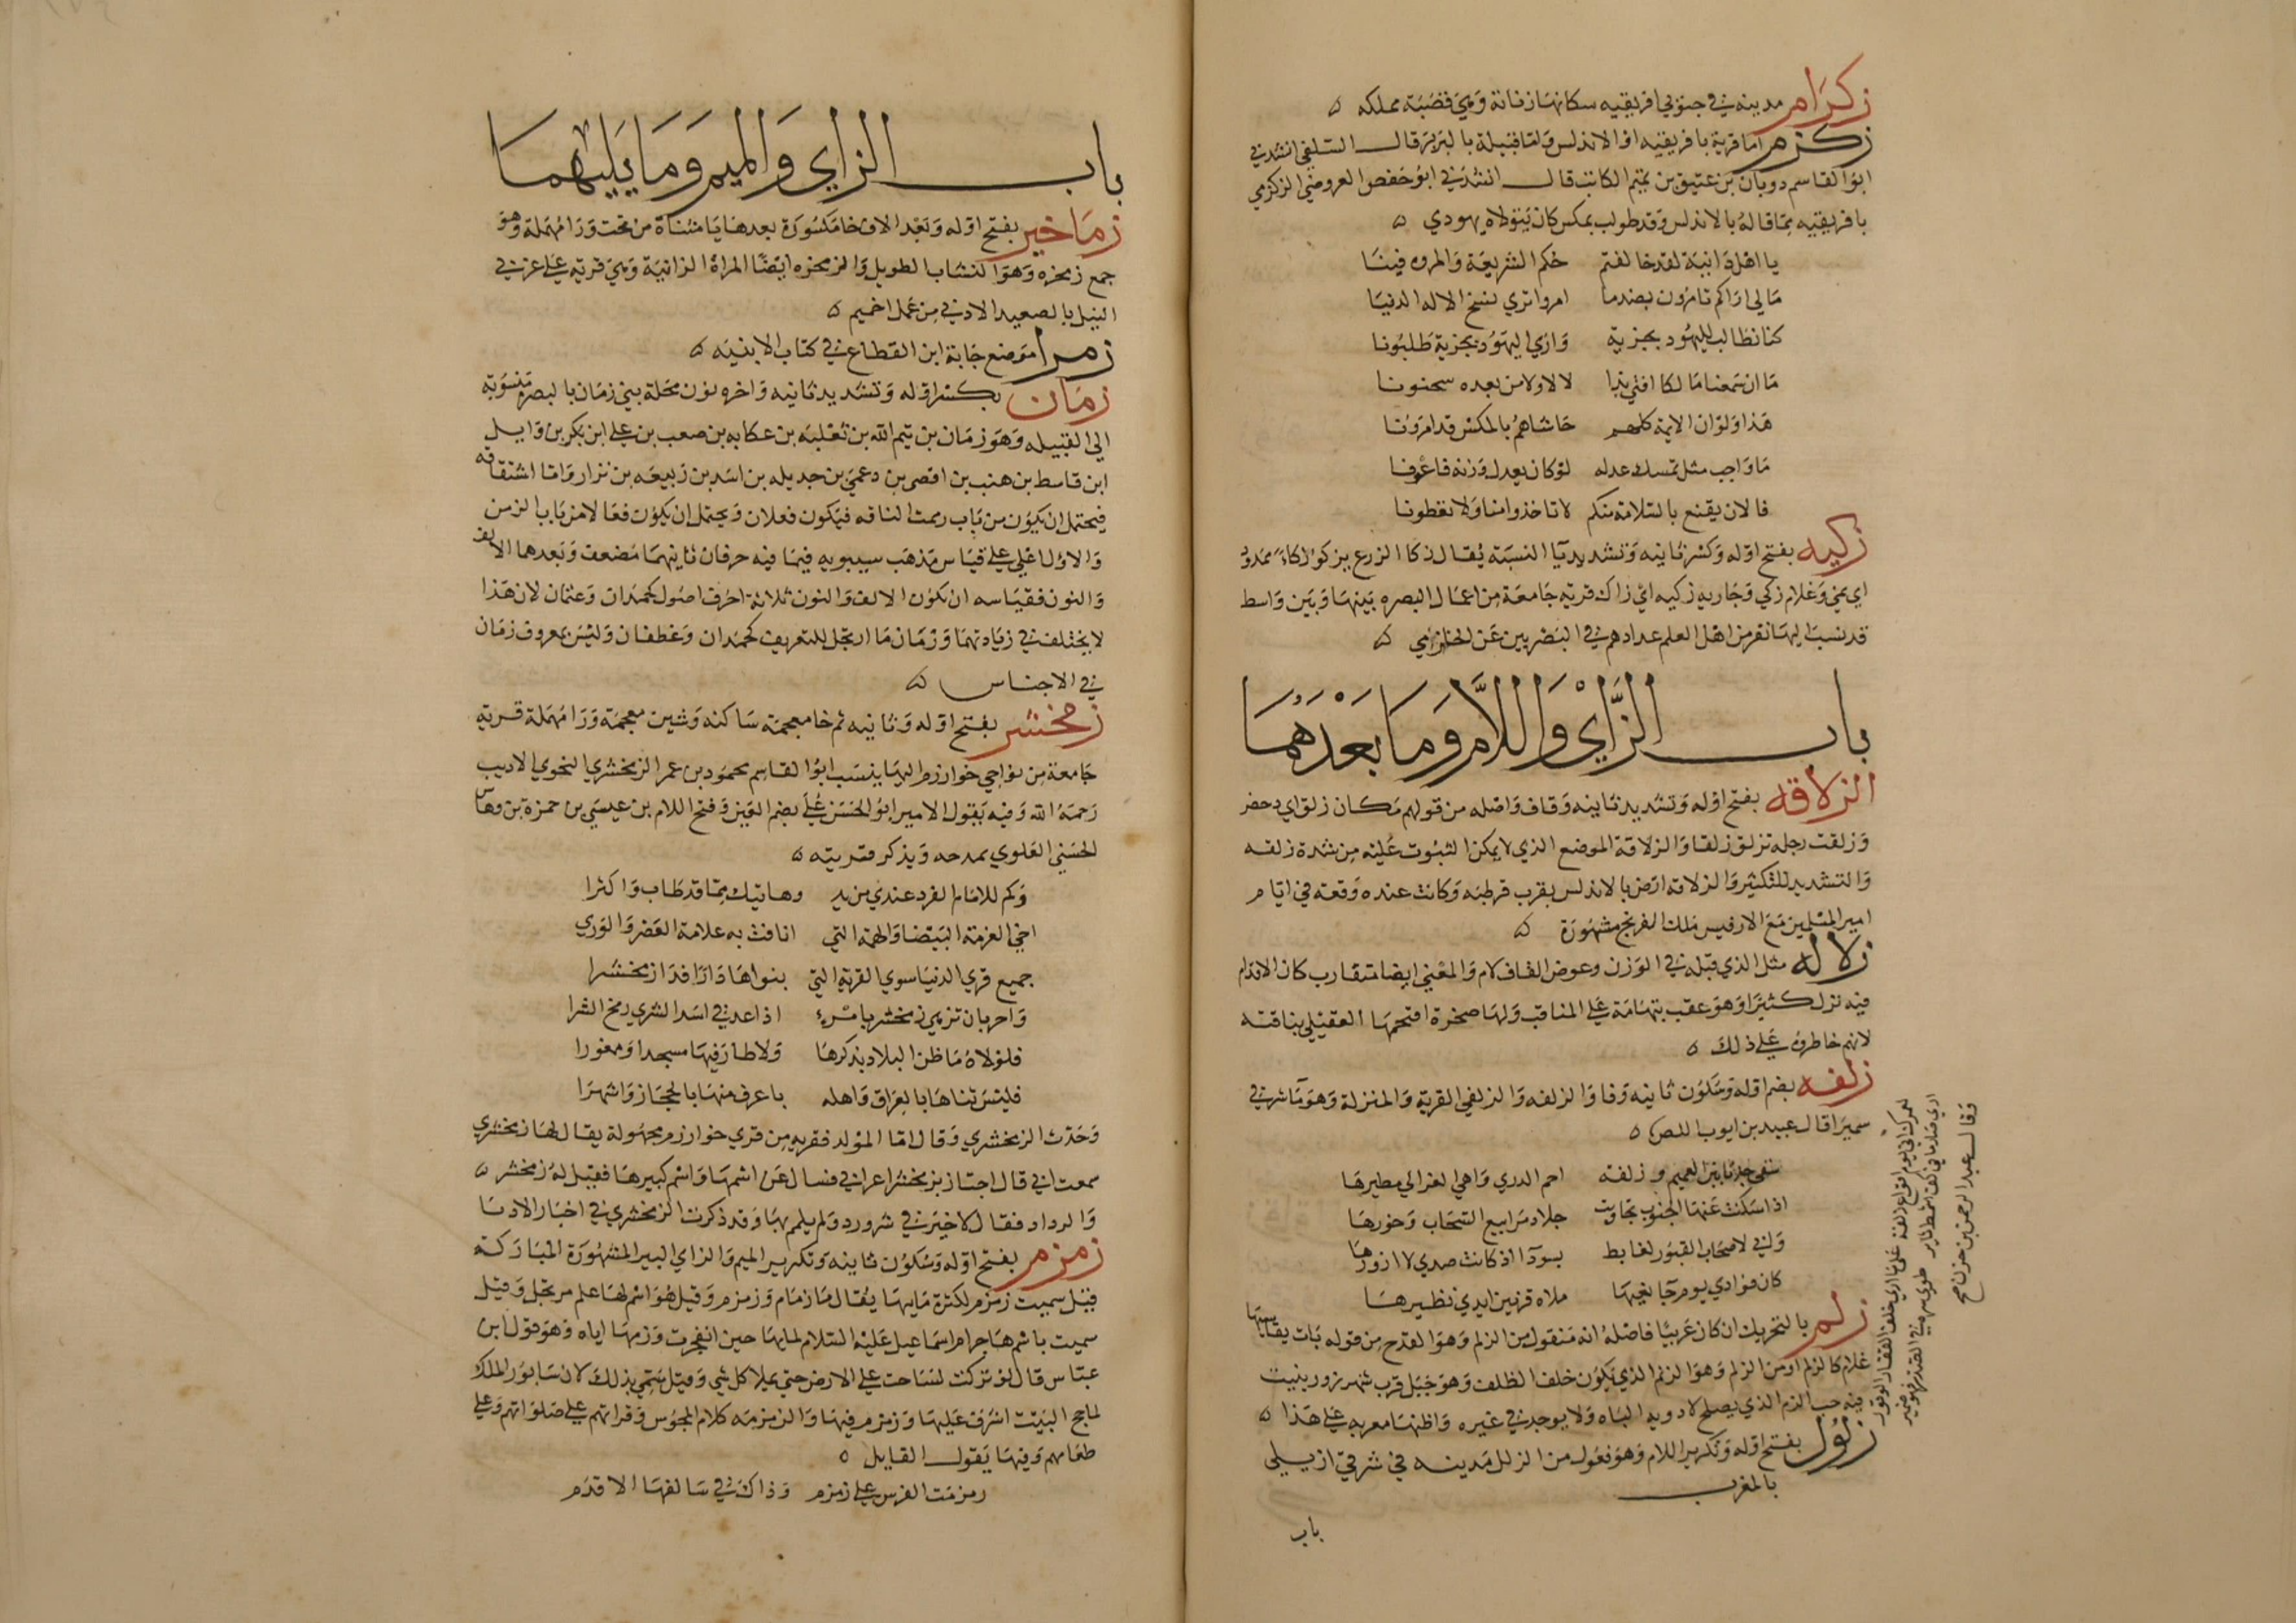 زكرام مدينه في جنوبي افريقيه سكانها زناتة وهي قصبة مملكه ه
زكزم اما قرية بافريقيه او الاندلس واما قبيلة بالبربر قال السلفي انشدني
ابو القاسم دوبان بن عتيق بن تميم الكاتب قال انشدني ابو حفص العروضي الزكزمي
بافريقيه مما قاله بالاندلس وقد طولب بمكس كان يتولاه يهودي ه
يا اهل دانية لقد خالفتم حكم الشريعة والمروه فينا
مالي اراكم تامرون بضد ما امروا تري نسخ الاله الدنيا
كنا نطالب لليهود بجزيه واري اليهود بجزية طلبونا
ما ان سمعنا مالكا افتي بذا لا لا ولا من بعده سحنونا
هذا ولو ان الايمة كلهم حاشاهم بالمكس قد امرونا
ما واجب مثلي تمسك عدله لو كان يعدل وزنه قاعونا
فالان يقنع بالسلامة منكم لا تاخذوا منا ولا تعطونا
زكيه بفتح اوله وكسر ثانيه وتشديد يا النسبة يقال زكا الزرع يزكو زكاء ممدود
اي نمي وغلام زكي وجاريه زكيه اي زاك قريه جامعة من اعمال البصره بينها وبين واسط
قد نسب اليها نفر من اهل العلم عدادهم في البصريين عن الحازمي ه
باب الزاي واللام وما بعدهما
الزلاقه بفتح اوله وتشديد ثانيه وقاف واصله من قولهم مكان زلق اي دحض
وزلقت رجله تزلق زلقا والزلاقة الموضع الذي لا يمكن الثبوت عليه من شدة زلقه
والتشديد للتكثير والزلاقة ارض بالاندلس بقرب قرطبه وكانت عنده وقعة في ايام
امير المسلمين مع الادفيس ملك الفرنج مشهورة ه
زلاله مثل الذي قبله في الوزن وعوض القاف لام والمعني ايضا متقارب كان الاقدام
فيه تزل كثيرا وهو عقب بتهامة علي المناقب ولها صخرة اقتحمها العقيلي بناقته
لانهم خاطروه علي ذلك ه
زلفه بضم اوله وسكون ثانيه وفا والزلفه والزلفي القربة والمنزلة وهو ما شرقي
سميرا قال عبيد بن ايوب اللص ه
سقي جدثا بين الغميم وزلفه احم الذري واهي العزالي مطيرها
اذا سكنت عنها الجنوب تجاوبت جلاد مرابيع السحاب وخورها
واني لاصحاب القبور لغابط بسودا اذ كانت صدي لا ازورها
كان فوادي يوم جا نعيها ملاه قز بين ايدي نظيرها
زلم بالتحريك ان كان عربيا فاصله انه منقول من الزلم وهو القدح من قوله بات يقاسيها
غلام كالزلم او من الزلم وهو الزنم الذي يكون خلف الظلف وهو جبل قرب شهرزور ينبت
فيه حب الزلم الذي يصلح لادويه الباه ولا يوجد في غيره واظنها معربه علي هذا ه
زلول بفتح اوله وتكرير اللام وهو فعول من الزلل مدينه في شرقي ازيلي
بالمغرب
باب
وقال عبد الرحمن بن حزن صح
باب الزاي والميم وما يليهما
زماخير بفتح اوله وبعد الالف خا مكسورة بعدها يا مثناة من تحت ورا مهملة وهو
جمع زمخره وهو النشاب الطويل والزمخره ايضا المراة الزانية وهي قريه علي غربي
النيل بالصعيد الادني من عمل اخميم ه
زمرا موضع جا به ابن القطاع في كتاب الابنيه ه
زمان بكسر اوله وتشديد ثانيه واخره نون محلة بني زمان بالبصرة منسوبة
الي القبيله وهو زمان بن تيم الله بن ثعلبه بن عكابه بن صعب بن علي ابن بكر بن وايل
ابن قاسط بن هنب بن افصي بن دعمي بن جديله بن اسد بن ربيعه بن نزار واما اشتقاقه
فيحتمل ان يكون من باب زممت الناقه فيكون فعلان ويحتمل ان يكون فعالا من باب الزمن
والاول اعلي علي قياس مذهب سيبويه فيما فيه حرفان ثانيهما مضعف وبعدهما الالف
والنون فقياسه ان تكون الالف والنون ثلاثة احرف اصول كحمدان وعثمان لان هذا
لا يختلف في زيادتهما وزمان ما ارتجل للتعريف كحمدان وغطفان وليس بمعروف زمان
في الاجناس ه
زمخشر بفتح اوله وثانيه ثم خا معجمة ساكنه وشين معجمة ورا مهملة قريه
جامعة من نواحي خوارزم اليها ينسب ابو القاسم محمود بن عمر الزمخشري النحوي الاديب
رحمه الله وفيه يقول الامير ابو الحسن علي بضم العين وفتح اللام بن عيسي بن حمزة بن وهاس
الحسني العلوي يمدحه ويذكر قريته ه
وكم للامام الفرد عندي من يد وهاتيك مما قد طاب واكثرا
اخي العزمة البيضا والهمة التي انافت به علامة العصر والوري
جميع قري الدنيا سوي القرية التي بنواها دارا فدا زمخشرا
واحر بان تزهي زمخشر بامرء اذا عد في اسد الشري زمخ الشرا
فلولاه ما ظن البلاد بذكرها ولا طار فيها مسجدا ومغورا
فليس ثناها بالعراق واهله باعرف منها بالحجاز واشهرا
وحدث الزمخشري وقال اما المولد فقريه من قري خوارزم مجهولة يقال لها زمخشري
سمعت ابي قال اجتاز بزمخشر اعرابي فسال عن اسمها واسم كبيرها فقيل له زمخشر ه
والرداد فقال لا خير في شر ورد ولم يلم بها وقد ذكرت الزمخشري في اخبار الادبا
زمزم بفتح اوله وسكون ثانيه وتكرير الميم والزاي البير المشهورة المباركة
قيل سميت زمزم لكثرة مايها يقال ما زمام وزمزم وقيل هو اسم لها علم مرتجل وقيل
سميت باسم هاجر ام اسماعيل عليه السلام لمايها حين انفجرت وزمها اياه وهو قول ابن
عباس قال لو تركت لساحت علي الارض حتي يملا كل شي وقيل سمي بذلك لان سابور الملك
لما حج البيت اشرف عليها وزمزم فيها والزمزمه كلام المجوس وقراتهم علي صلواتهم وعلي
طعامهم وفيها يقول القايل ه
زمزمت الفرس علي زمزم وذاك في سالفها الاقدم